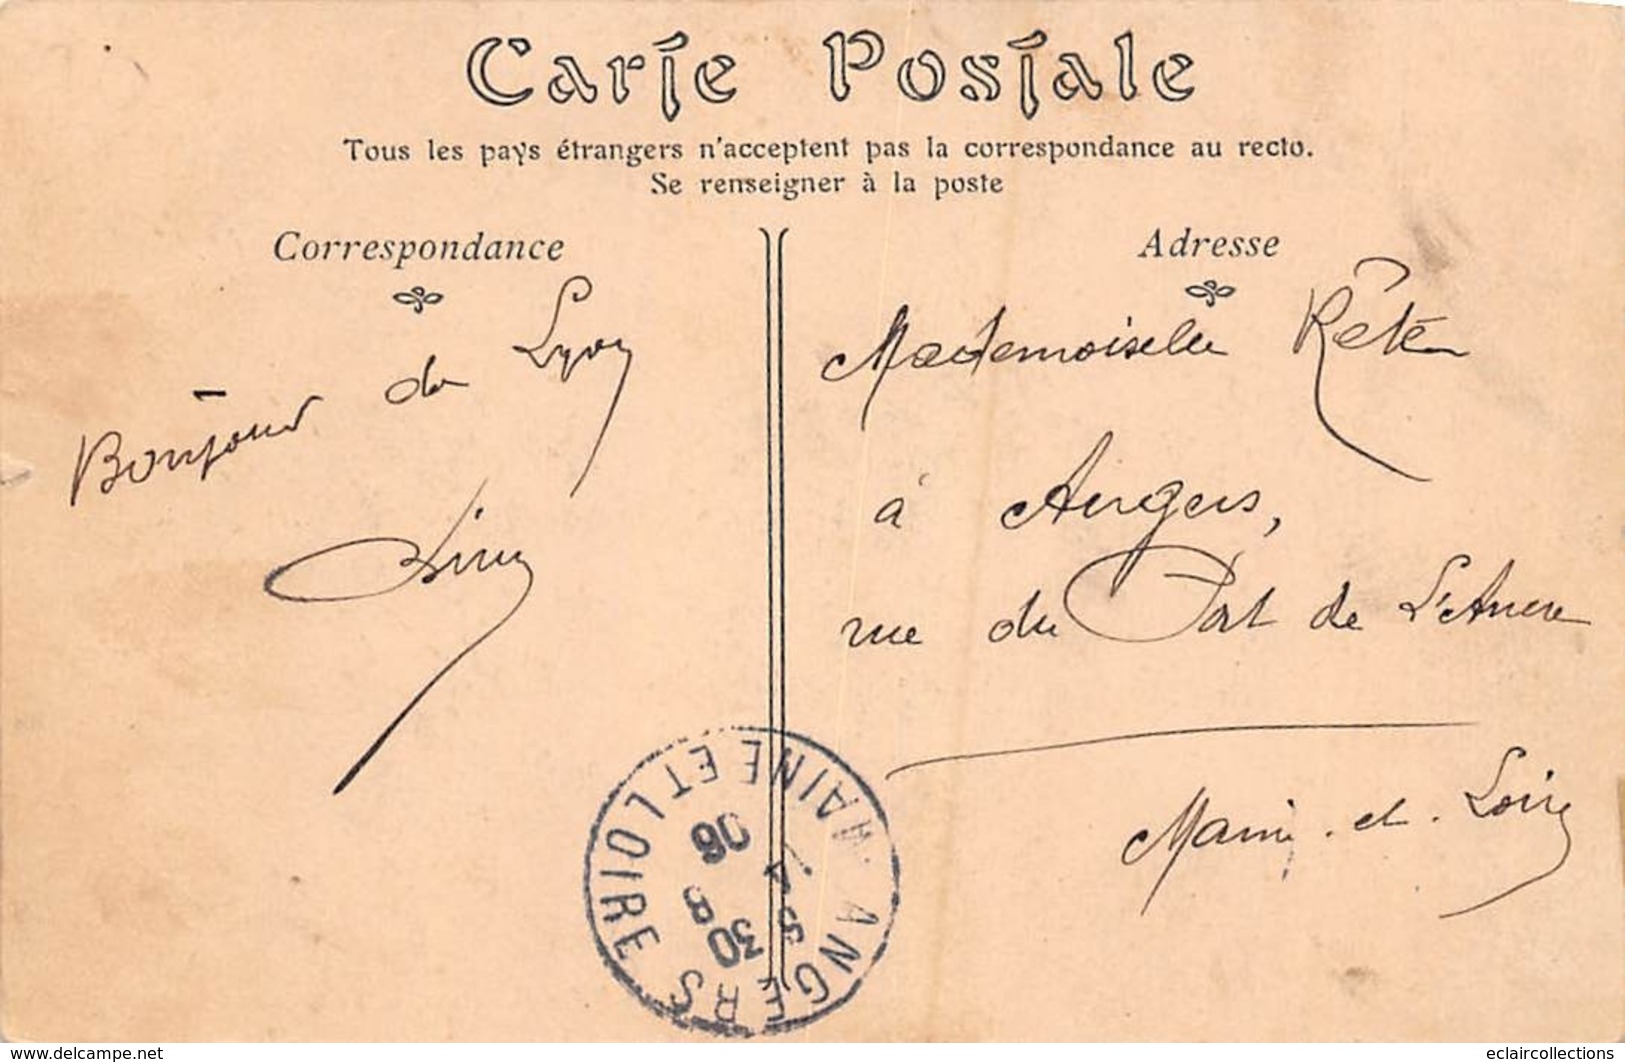 Carte Postale
Tous les pays étrangers n'acceptent pas la correspondance au recto.
Se renseigner à la poste
Correspondance
Adresse
Bonjour de Lyon
Mademoiselle
à Angers,
rue du Port de L'Ancre
Maine-et-Loire
ANGERS
MAINE ET LOIRE
30
8
06
www.delcampe.net
eclaircollections